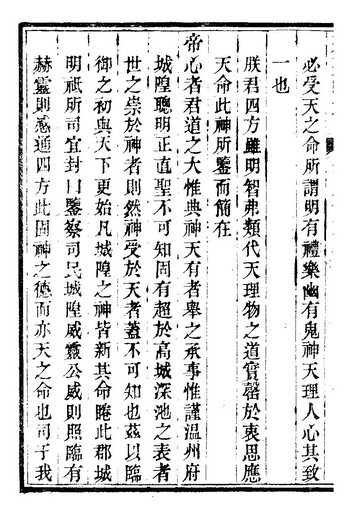 必受天之命所謂明有禮樂幽有鬼神天理人心其致
一也
朕君四方雖明智弗類代天理物之道實罄於衷思應
天命此神所鑒而簡在
帝心者君道之大惟典神天有者舉之承事惟謹温州府
城隍聰明正直聖不可知固有超於高城深池之表者
世之崇於神者則然神受於天者蓋不可知也茲以臨
御之初與天下更始凡城隍之神皆新其命睠此郡城
明祇所司宜封曰鑒察司民城隍威靈公威則照臨有
赫靈則感通四方此固神之德而亦天之命也司于我